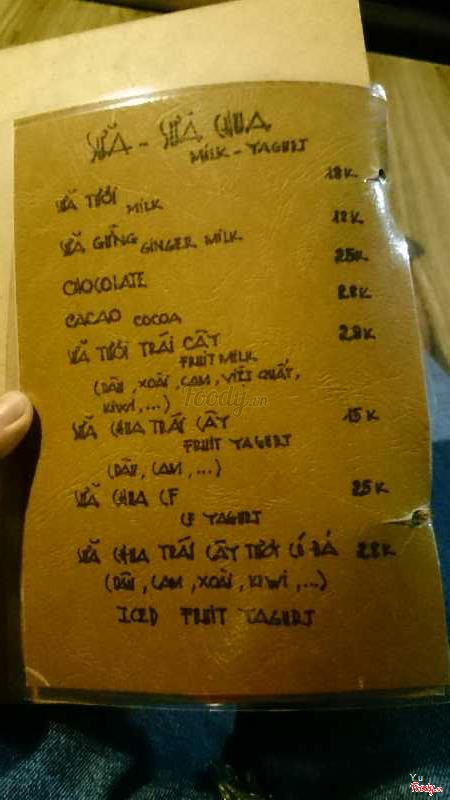 SỮA - SỮA CHUA
MILK - YAGURT
SỮA TƯƠI MILK 18K
SỮA GỪNG GINGER MILK 18K
CHOCOLATE 25K
CACAO COCOA 28K
SỮA TƯƠI TRÁI CÂY 28K
FRUIT MILK
(DÂU, XOÀI, CAM, VIỆT QUẤT,
KIWI,...)
SỮA CHUA TRÁI CÂY 15K
FRUIT YAGURT
(DÂU, CAM,...)
SỮA CHUA CF 25K
CF YAGURT
SỮA CHUA TRÁI CÂY TƯƠI CÓ ĐÁ 28K
(DÂU, CAM, XOÀI, KIWI,...)
ICED FRUIT YAGURT
Foody.vn
Yu
Foody.vn